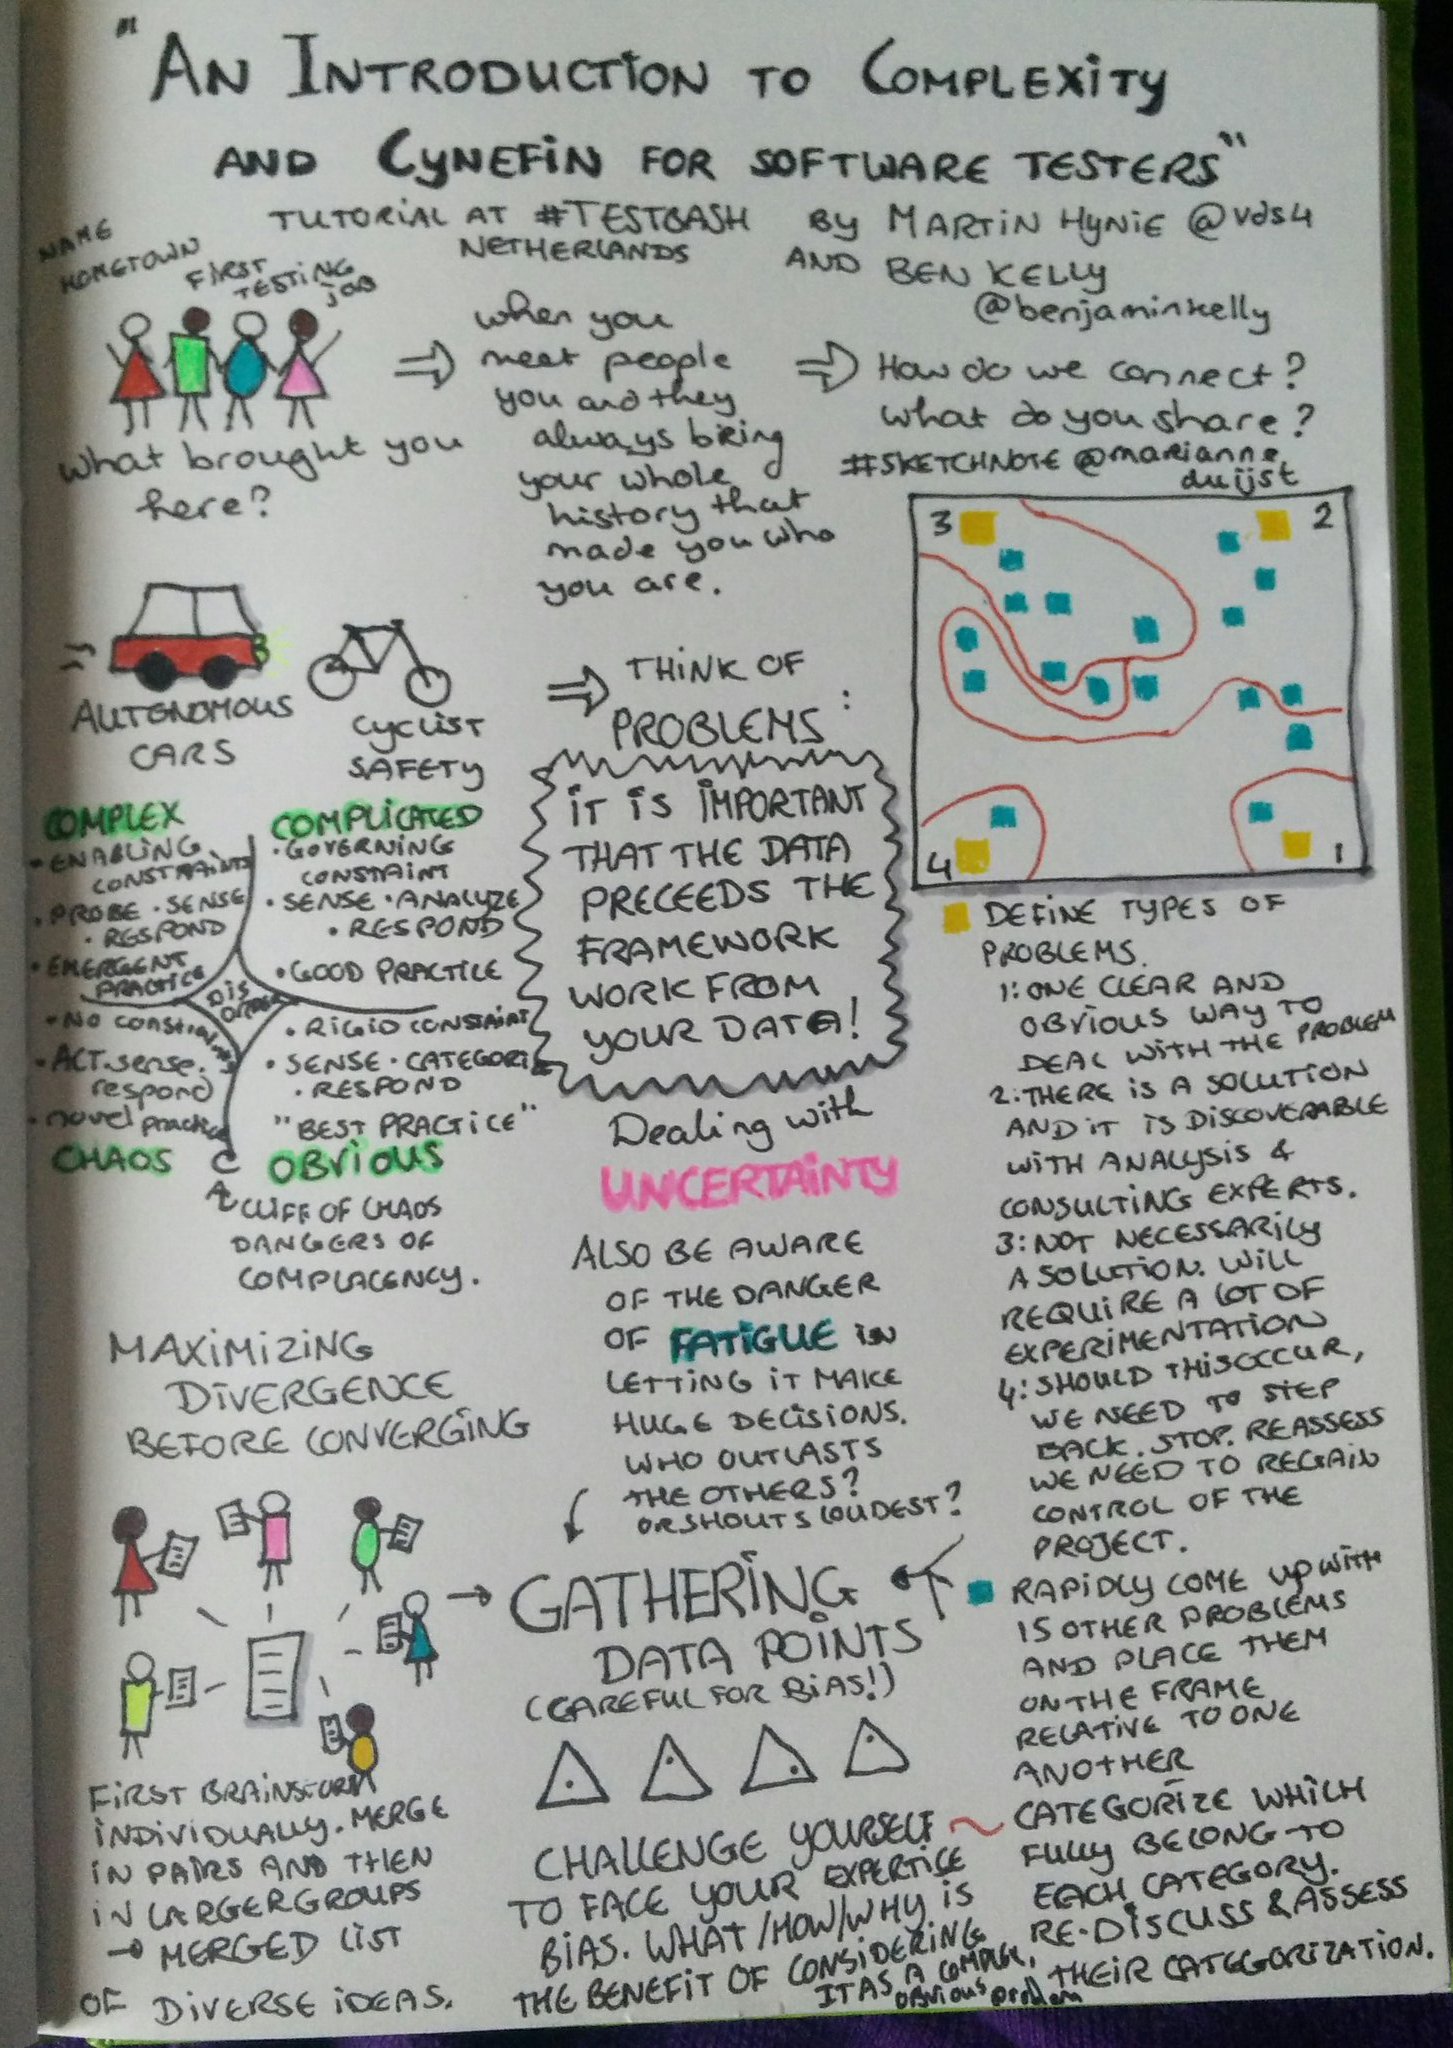 "AN INTRODUCTION TO COMPLEXITY
AND CYNEFIN FOR SOFTWARE TESTERS"
TUTORIAL AT #TESTBASH
NETHERLANDS
BY MARTIN HYNIE @vds4
AND BEN KELLY
@benjaminkelly
NAME
HOMETOWN
FIRST
TESTING
JOB
what brought you
here?
when you
meet people
you and they
always bring
your whole
history that
made you who
you are.
How do we connect?
what do you share?
#SKETCHNOTE @marianne
duijst
AUTONOMOUS
CARS
CYCLIST
SAFETY
THINK OF
PROBLEMS:
IT IS IMPORTANT
THAT THE DATA
PRECEEDS THE
FRAMEWORK
WORK FROM
YOUR DATA!
COMPLEX
• ENABLING
CONSTRAINTS
• PROBE • SENSE
• RESPOND
• EMERGENT
PRACTICE
COMPLICATED
• GOVERNING
CONSTAINT
• SENSE • ANALYZE
• RESPOND
• GOOD PRACTICE
DIS
ORDER
• No constraints
• ACT. sense.
respond
• novel practice
CHAOS
• RIGID CONSTAINT
• SENSE • CATEGORIZE
• RESPOND
"BEST PRACTICE"
OBVIOUS
CLIFF OF CHAOS
DANGERS OF
COMPLACENCY.
Dealing with
UNCERTAINTY
ALSO BE AWARE
OF THE DANGER
OF FATIGUE IN
LETTING IT MAKE
HUGE DECISIONS.
WHO OUTLASTS
THE OTHERS?
OR SHOUTS LOUDEST?
3
2
4
1
DEFINE TYPES OF
PROBLEMS.
1: ONE CLEAR AND
OBVIOUS WAY TO
DEAL WITH THE PROBLEM
2: THERE IS A SOLUTION
AND IT IS DISCOVERABLE
WITH ANALYSIS &
CONSULTING EXPERTS.
3: NOT NECESSARILY
A SOLUTION. WILL
REQUIRE A LOT OF
EXPERIMENTATION
4: SHOULD THIS OCCUR,
WE NEED TO STEP
BACK. STOP. REASSESS
WE NEED TO REGAIN
CONTROL OF THE
PROJECT.
RAPIDLY COME UP WITH
15 OTHER PROBLEMS
AND PLACE THEM
ON THE FRAME
RELATIVE TO ONE
ANOTHER
CATEGORIZE WHICH
FULLY BELONG TO
EACH CATEGORY.
RE-DISCUSS & ASSESS
THEIR CATEGORIZATION.
MAXIMIZING
DIVERGENCE
BEFORE CONVERGING
FIRST BRAINSTORM
INDIVIDUALLY. MERGE
IN PAIRS AND THEN
IN LARGER GROUPS
→ MERGED LIST
OF DIVERSE IDEAS.
GATHERING
DATA POINTS
(CAREFUL FOR BIAS!)
CHALLENGE YOURSELF
TO FACE YOUR EXPERTICE
BIAS. WHAT/HOW/WHY IS
THE BENEFIT OF CONSIDERING
IT AS A COMPLEX,
OBVIOUS problem